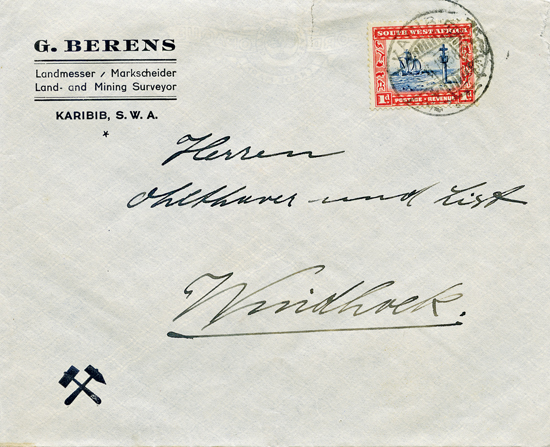 G. BERENS
Landmesser / Markscheider
Land- and Mining Surveyor
KARIBIB, S. W. A.
*
SOUTH WEST AFRICA
1d POSTAGE - REVENUE 1d
Herren
Ohlthaver und List
Windhoek.